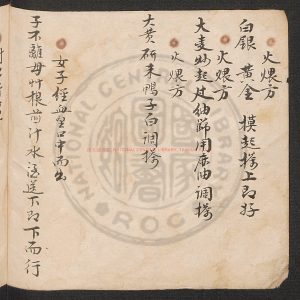 火煨方
白銀 黃金 模起搽上即好
火煨方
大麦炒起灶細篩用麻油調搽
火煨方
大黄研末鴨子白調搽
女子經血皇口中而出
子不離母艸根煎汁水送下即下而行
NATIONAL CENTRAL LIBRARY
R.O.C.